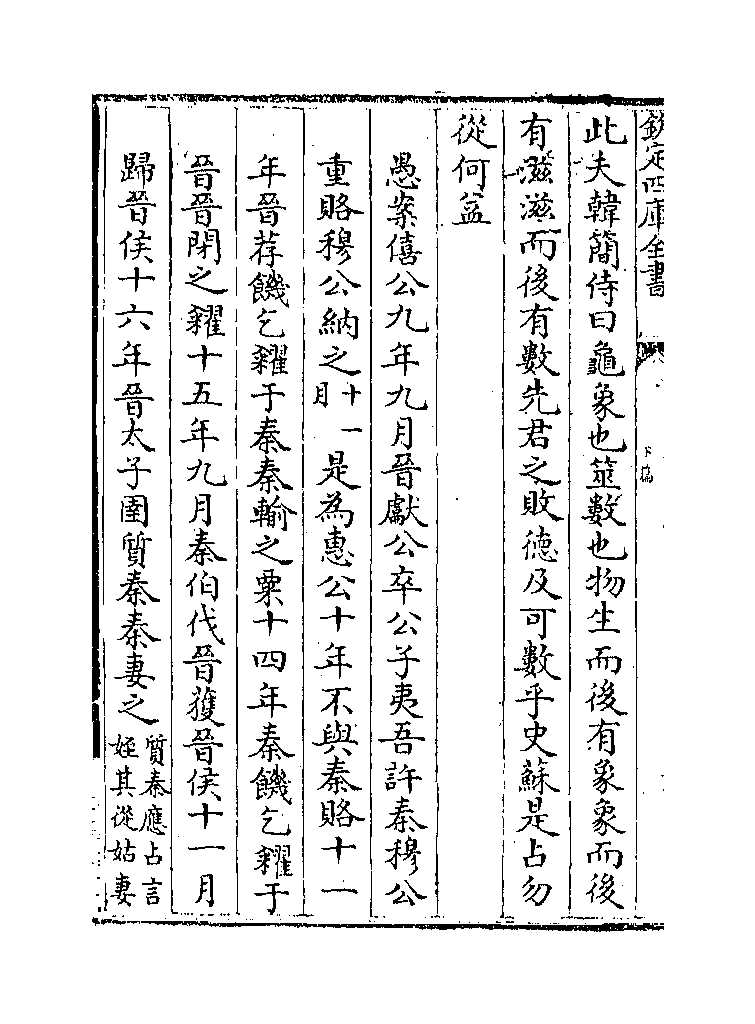 欽定四庫全書
此夫韓簡侍曰龜象也筮數也物生而後有象象而後
有滋滋而後有數先君之敗德及可數乎史蘇是占勿
從何益
愚案僖公九年九月晉獻公卒公子夷吾許秦穆公
重賂穆公納之十一月是為惠公十年不與秦賂十一
年晉荐饑乞糴于秦秦輸之粟十四年秦饑乞糴于
晉晉閉之糴十五年九月秦伯伐晉獲晉侯十一月
歸晉侯十六年晉太子圉質秦秦妻之質秦應占言姪其從姑妻